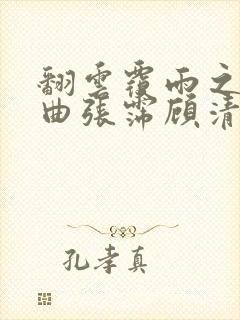 翻雲覆雨之
曲張霈顾清
孔孝真